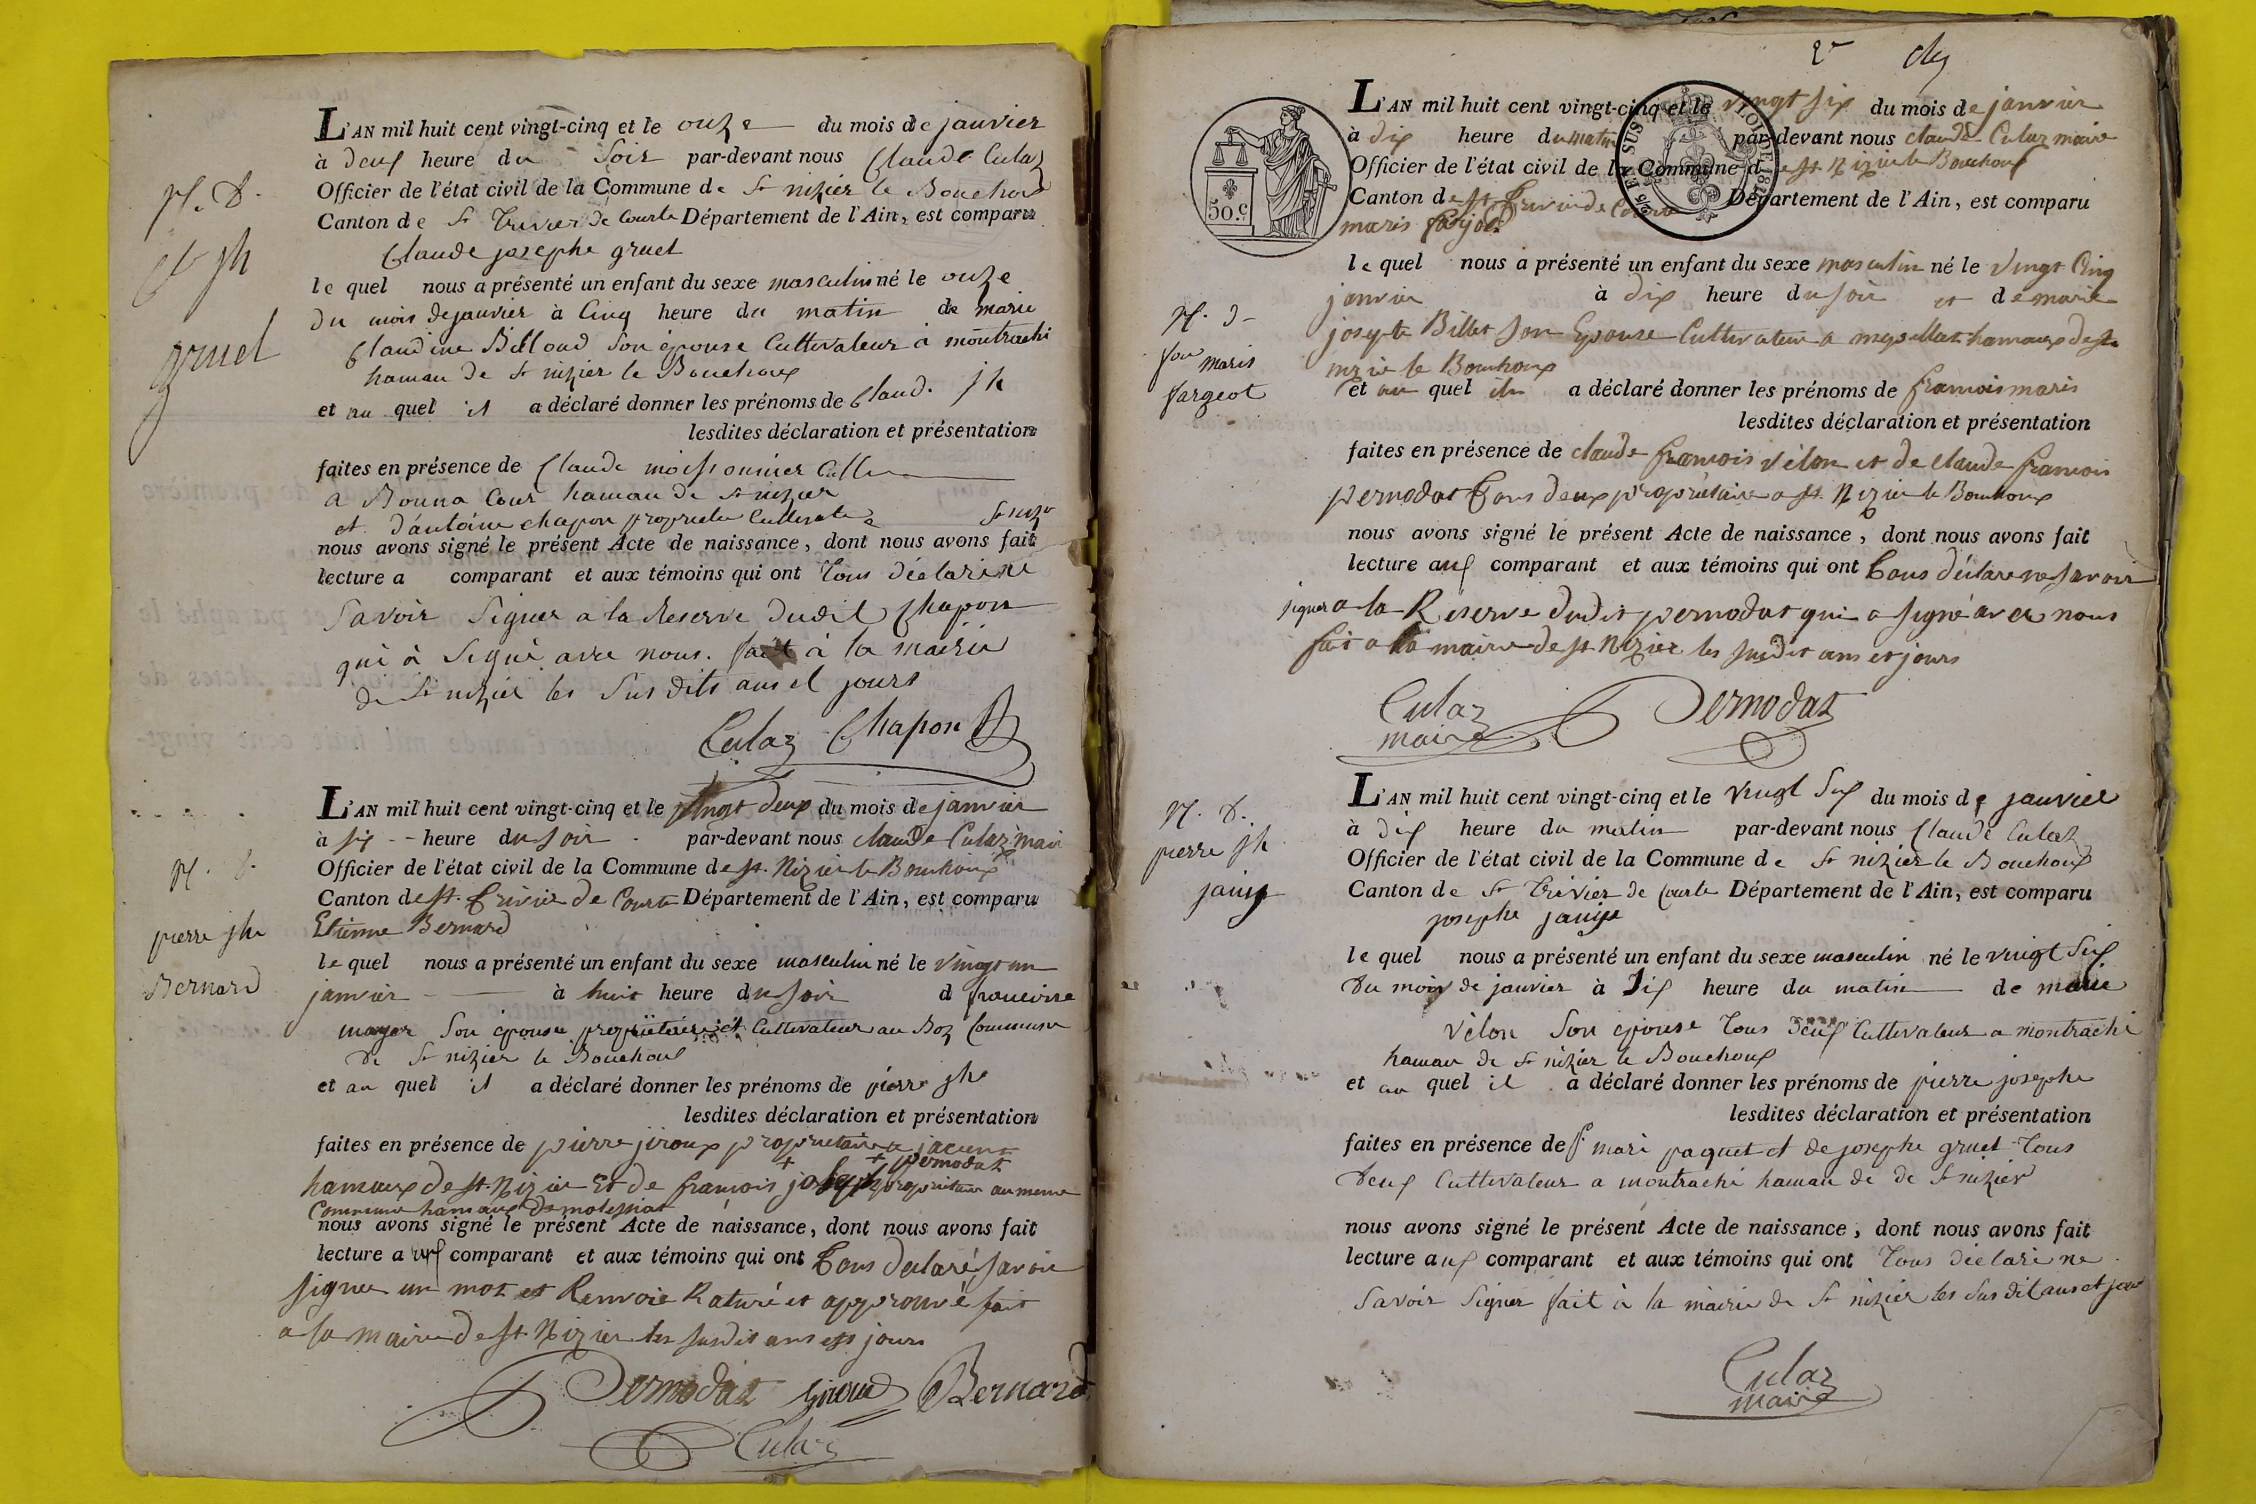 L'AN mil huit cent vingt-cinq et le onze du mois de janvier
à deux heure du Soir par-devant nous Claude Culaz
Officier de l'état civil de la Commune de St nizier le Bouchoux
Canton de St Trivier de Courte Département de l'Ain, est comparu
Claude josephe gruel
le quel nous a présenté un enfant du sexe masculin né le onze
du mois de janvier à Cinq heure du matin de marie
Claudine Billoud Son épouse Cultivateur à montrachi
hamau de St nizier le Bouchoux
et au quel il a déclaré donner les prénoms de Claud. jh
lesdites déclaration et présentation
faites en présence de Claude moissonnier Cult
a Bouna Cour hamau de St nizier
et d'antoine chapon propriete Cultivate a St nizr
nous avons signé le présent Acte de naissance, dont nous avons fait
lecture a comparant et aux témoins qui ont Tous déclari ne
Savoir Signer a la Reserve dudit Chapon
qui à Signé avec nous. fait à la mairie
de St nizier les Sus dits ans et jours
Culaz Chapon
N. D.
Cl jh
gruel
L'AN mil huit cent vingt-cinq et le vingt deux du mois de janvier
à six heure du soir par-devant nous claude Culaz mair
Officier de l'état civil de la Commune de st. Nizier le Bouchoux
Canton de st. Trivier de Courte Département de l'Ain, est comparu
Etienne Bernard
le quel nous a présenté un enfant du sexe masculin né le vingt un
janvier à huit heure du soir d
mayer Son épouse propriétaire et Cultivateur au Boz Commune
de St nizier le Bouchoux
et au quel il a déclaré donner les prénoms de pierre jhe
lesdites déclaration et présentation
faites en présence de pierre jiroux propriétaire a
pernodat
hamaux de st. Nizier Et de françois propriétaire au meme
Commune hamaux de
nous avons signé le présent Acte de naissance, dont nous avons fait
lecture a ux comparant et aux témoins qui ont Tous declaré savoir
signer un mot et Renvoie Raturé et approuvé fait
a la mairie de st. Nizier les susdit ans et jours
Pernodat Giroud Bernard
Culaz
N. D.
pierre jhe
Bernard
2e
50.c
25 EN SUS LOI DE 1816
L'AN mil huit cent vingt-cinq et le vingt six du mois de janvier
à dix heure du matin par-devant nous claude Culaz maire
Officier de l'état civil de la Commune de st. Nizier le Bouchoux
Canton de st Trivier de Courte Département de l'Ain, est comparu
maris
le quel nous a présenté un enfant du sexe masculin né le vingt Cinq
janvier à dix heure du soir et de marie
josepte Billet son Epouse Cultivateur a hamaux de st
nizie le Bouchoux
et au quel ils a déclaré donner les prénoms de francois maris
lesdites déclaration et présentation
faites en présence de claude francois vélon et de claude francois
pernodat Tous deux propriétaire a st. Nizier le Bouchoux
nous avons signé le présent Acte de naissance, dont nous avons fait
lecture aux comparant et aux témoins qui ont Tous déclare ne savoir
signer a la Réserve dudit pernodat qui a signé avec nous
fait a la mairie de st. Nizier les susdit ans et jours
Culaz Pernodat
maire
N. D.
fou maris
fargeot
L'AN mil huit cent vingt-cinq et le vingt Six du mois de janvier
à dix heure du matin par-devant nous Claude Culaz
Officier de l'état civil de la Commune de St nizier le Bouchoux
Canton de St Trivier de Courte Département de l'Ain, est comparu
josephe
le quel nous a présenté un enfant du sexe masculin né le vingt Six
Du mois de janvier à Six heure du matin de marie
vélon Son épouse Tous deux Cultivateur a montrachi
hamau de St nizier le Bouchoux
et au quel il a déclaré donner les prénoms de pierre josephe
lesdites déclaration et présentation
faites en présence de mari paquet et de josephe gruet Tous
Deux Cultivateur a montrachi hamau de de St nizier
nous avons signé le présent Acte de naissance, dont nous avons fait
lecture aux comparant et aux témoins qui ont Tous déclari ne
Savoir Signer fait à la mairie de St nizier les Sus dit ans et jour
Culaz
maire
N. D.
pierre jh